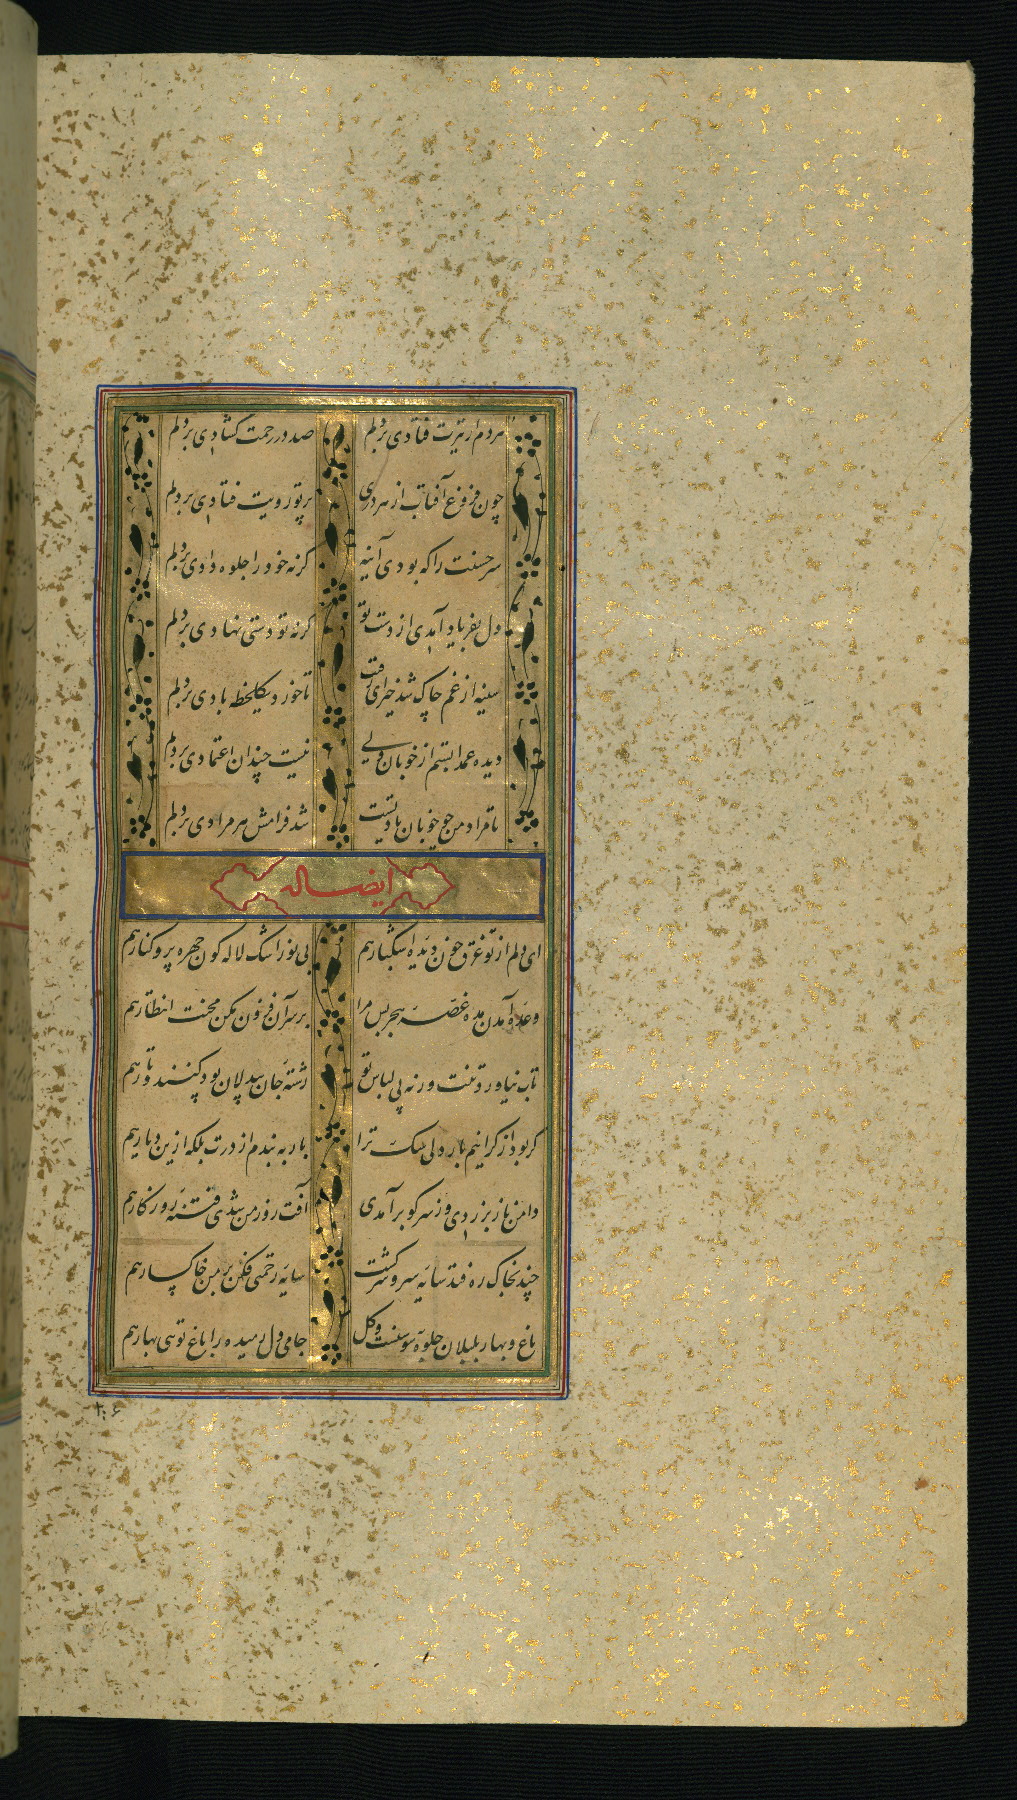 هر دم از تیرت فتادی بر دلم صد در رحمت کشادی بر دلم
چون فروغ آفتاب از هر دری پرتو رویت فتادی بر دلم
سر حسنت را که بودی آینه کرنه خود را جلوه دادی بر دلم
دل بفریاد آمدی از دست تو کرنه تو دستی نهادی بر دلم
سینه از غم چاک شد خیزای رفت تا خورد یکلحظه بادی بر دلم
دیده عمدا بستم از خوبان ولی نیست چندان اعتمادی بر دلم
تا مراد من ز خوبان یاد تست شد فرامش هر مرادی بر دلم
ایضا له
ای دلم از تو غرق خون دیده اشکبار هم بی تو ز اشک لاله کون چهره پر و کنار هم
وعده آمدن مده غصه هجر بس مرا بر سر آن فزون مکن محنت انتظار هم
تاب نیاورد تنت ورنه پی لباس تو رشته جان بیدلان پود کنند و تار هم
کر بود از کرانیم بار دلی سک ترا بار به بندم از درت بلکه ازین دیار هم
دامن ناز بر زدی وز سر کو بر آمدی آفت روز من شدی فتنه روزکار هم
چند بخاک ره فتد سایه سرو سرکشت سایه رحمتی فکن بر من خاکسار هم
باغ و بهار بلبلان جلوه سوسنست و کل جامی دل رمیده را باغ تویی بهار هم
۲۰۶